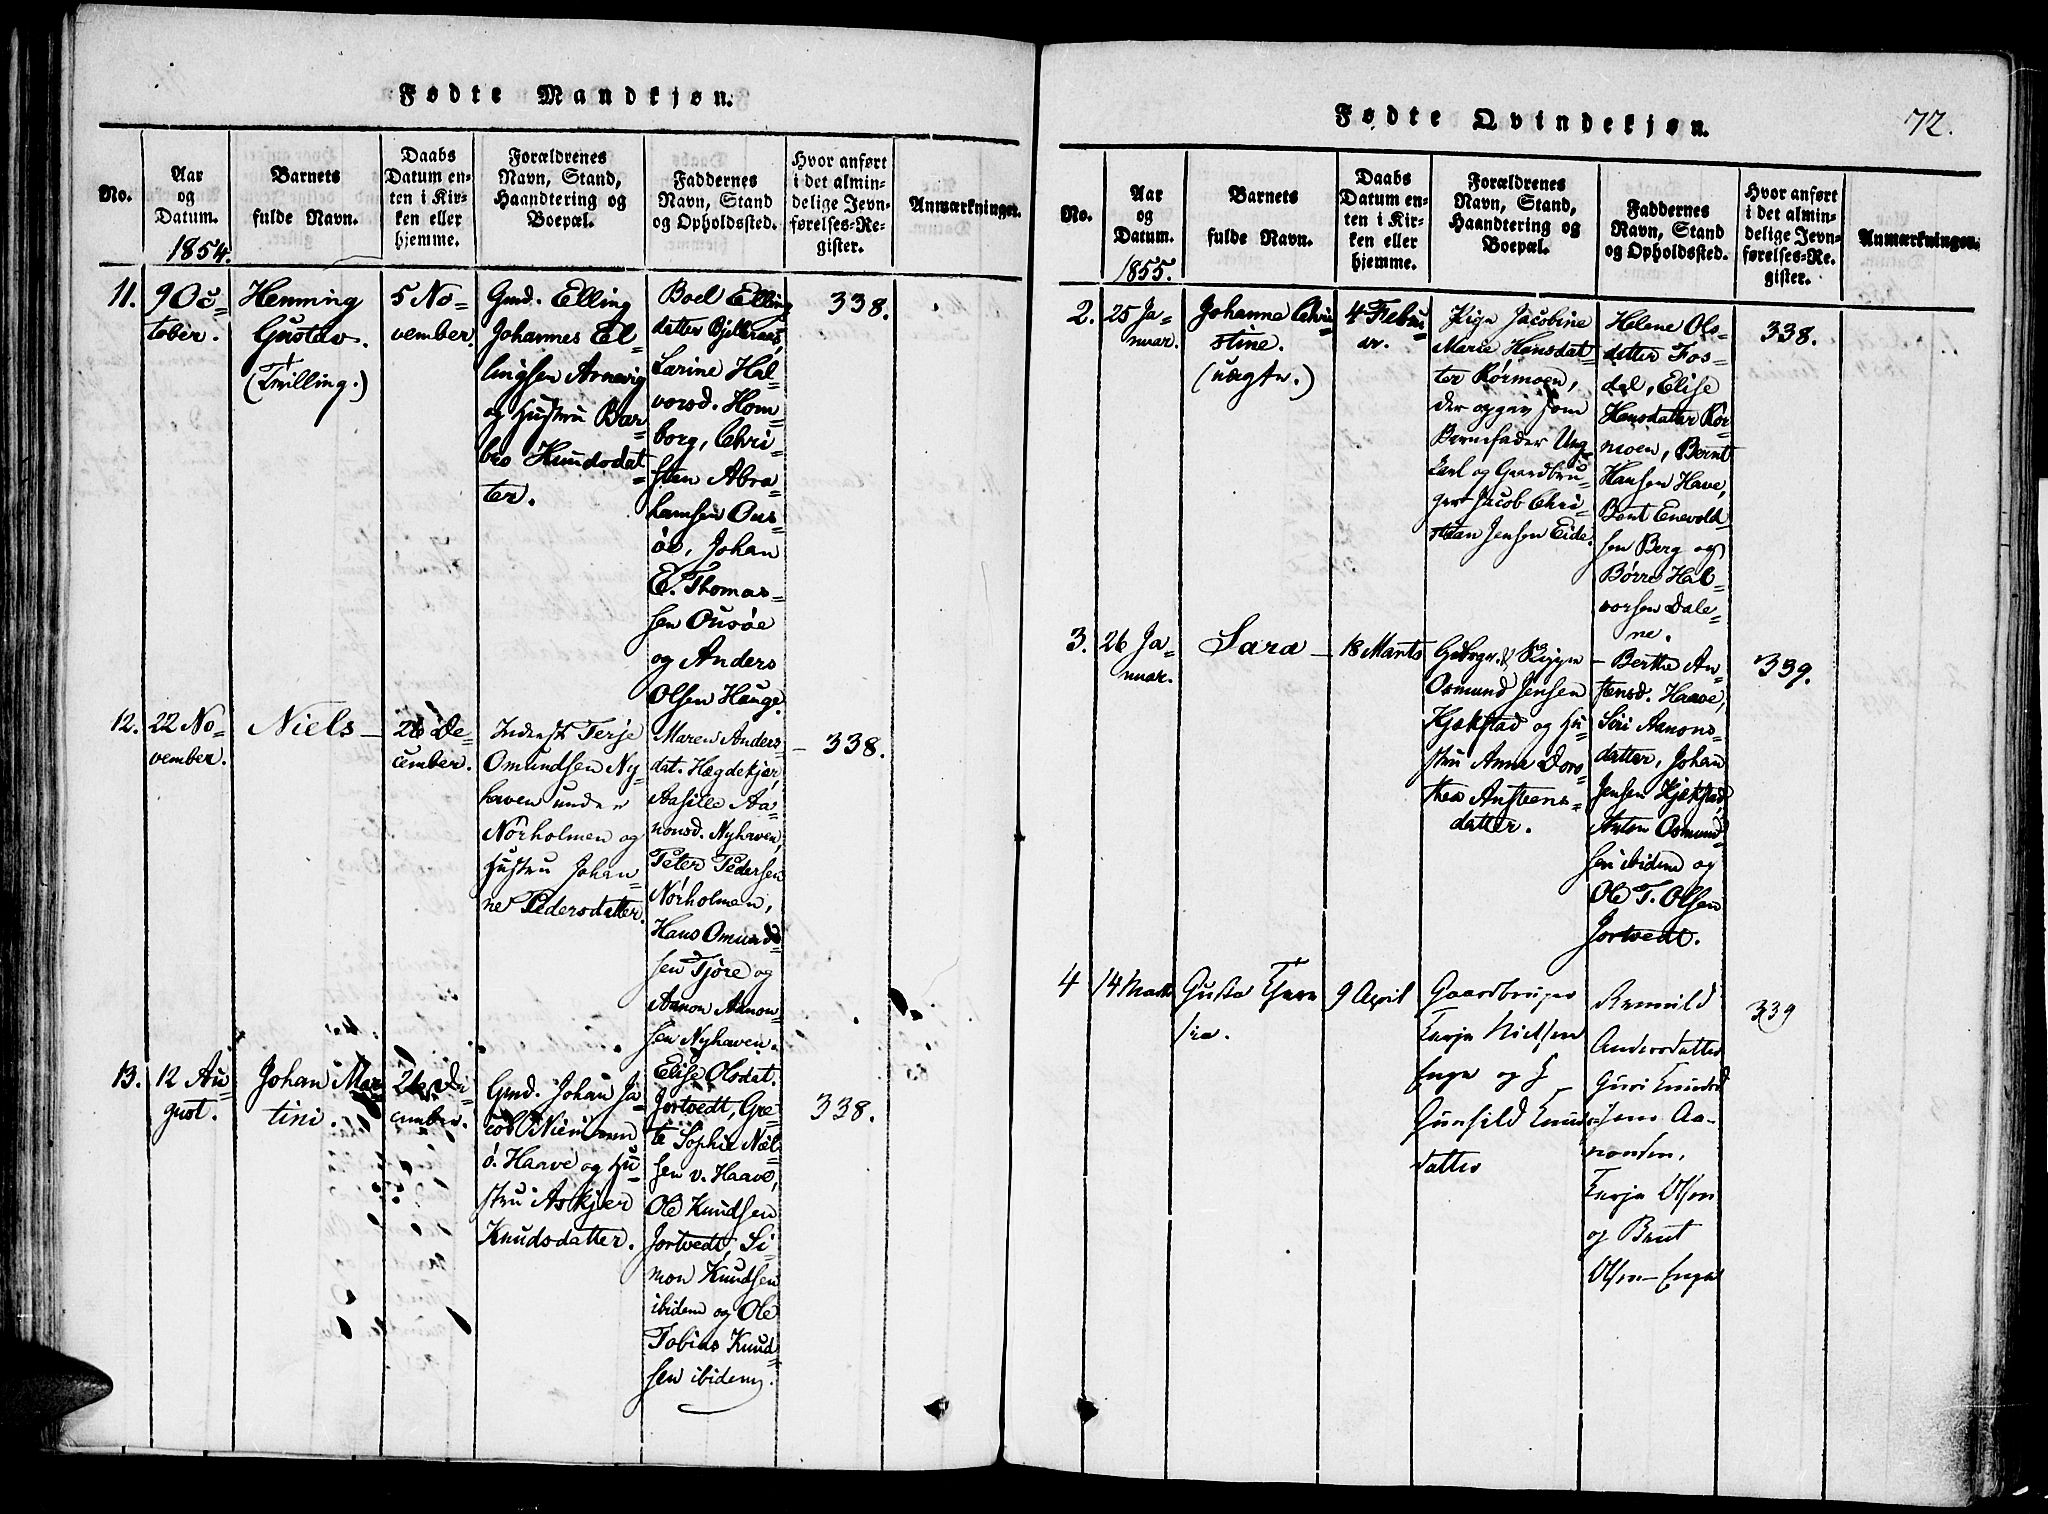 Fødte Mandkjøn.
No.
Aar
og
Datum.
1854.
Barnets
fulde Navn.
Daabs
Datum en-
ten i Kir-
ken eller
hjemme.
Forældrenes
Navn, Stand,
Haandtering og
Boepæl.
Faddernes
Navn, Stand
og Opholdssted.
Hvor anført
i det almin-
delige Jevn-
førelses-Re-
gister.
Anmærkninger.
11.
9 Oc-
tober.
Henning
Gustav.
(Tvilling.)
5 No-
vember.
Gmd. Elling
Johannes El-
lingsen Arnevig
og Hustru Bar-
bro Knudsdat-
ter.
Boel Ellings
datter Bjellenæs,
Larine Hal-
vorsd. Hom-
borg, Chri-
sten Abra-
hamsen Ous-
öe, Johan
E. Thomas-
sen Ousöe
og Anders
Olsen Hauge.
338.
12.
22 No-
vember.
Niels
26 De-
cember.
Inderst Terje
Omundsen Ny-
haven under
Nörholmen og
Hustru Johan-
ne Pedersdatter.
Maren Anders-
dat. Hægdekjær,
Aasille Aa-
nonsd. Nyhaven,
Peter Pedersen
Nörholmen,
Hans Omund-
sen Tjöre og
Aanon Aanon-
sen Nyhaven.
338.
13.
12 Au-
gust.
Johan Mar-
tini.
26 De-
cember.
Gmd. Johan Ja-
cob
ö. Haave og Hu-
stru Askjer
Knudsdatter.
Elise Olsdat.
Jortvedt, Gre-
te Sophie Niel-
sen v. Haave,
Ole Knudsen
Jortvedt, Si-
mon Knudsen
ibidem og Ole
Tobias Knud-
sen ibidem.
338.
Fødte Qvindekjøn.
72.
No.
Aar
og
Datum.
1855.
Barnets
fulde Navn.
Daabs
Datum en-
ten i Kir-
ken eller
hjemme.
Forældrenes
Navn, Stand,
Haandtering og
Boepæl.
Faddernes
Navn, Stand
og Opholdssted.
Hvor anført
i det almin-
delige Jevn-
førelses-Re-
gister.
Anmærkninger.
2.
25 Ja-
nuar.
Johanne Chri-
stine.
(uægte.)
4 Febru-
ar.
Pige Jacobine
Marie Hansdat-
ter Rörmoen,
der opgav som
Barnefader Ung-
karl og Gaardbru-
ger Jacob Chri-
stian Jensen Eide.
Helene Ols-
datter Fos-
dal, Elise
Hansdatter Rör-
moen, Bernt
Hansen Have,
Bent Enevold-
sen Berg og
Börre Hal-
vorsen Dale-
ne.
338.
3.
26 Ja-
nuar.
Sara
18 Marts
Osmund Jensen
Kjækstad og Hu-
stru Anne Doro-
thea Austens-
datter.
Berthe Au-
stensd. Haave,
Siri Aanons-
datter, Johan
Jensen Kjækstad,
Anton Osmund-
sen ibidem og
Ole T. Olsen
Jortvedt.
339.
4
14 Marts
Gusta
9 April
Gaardbruger
Terje Nielsen
Enge og H
Gunhild Knuds-
datter
Andersdatter
Guri Knudsd
Jens Aa-
nonsen,
Terje Olsen
og Bent
Olsen - Enge
339